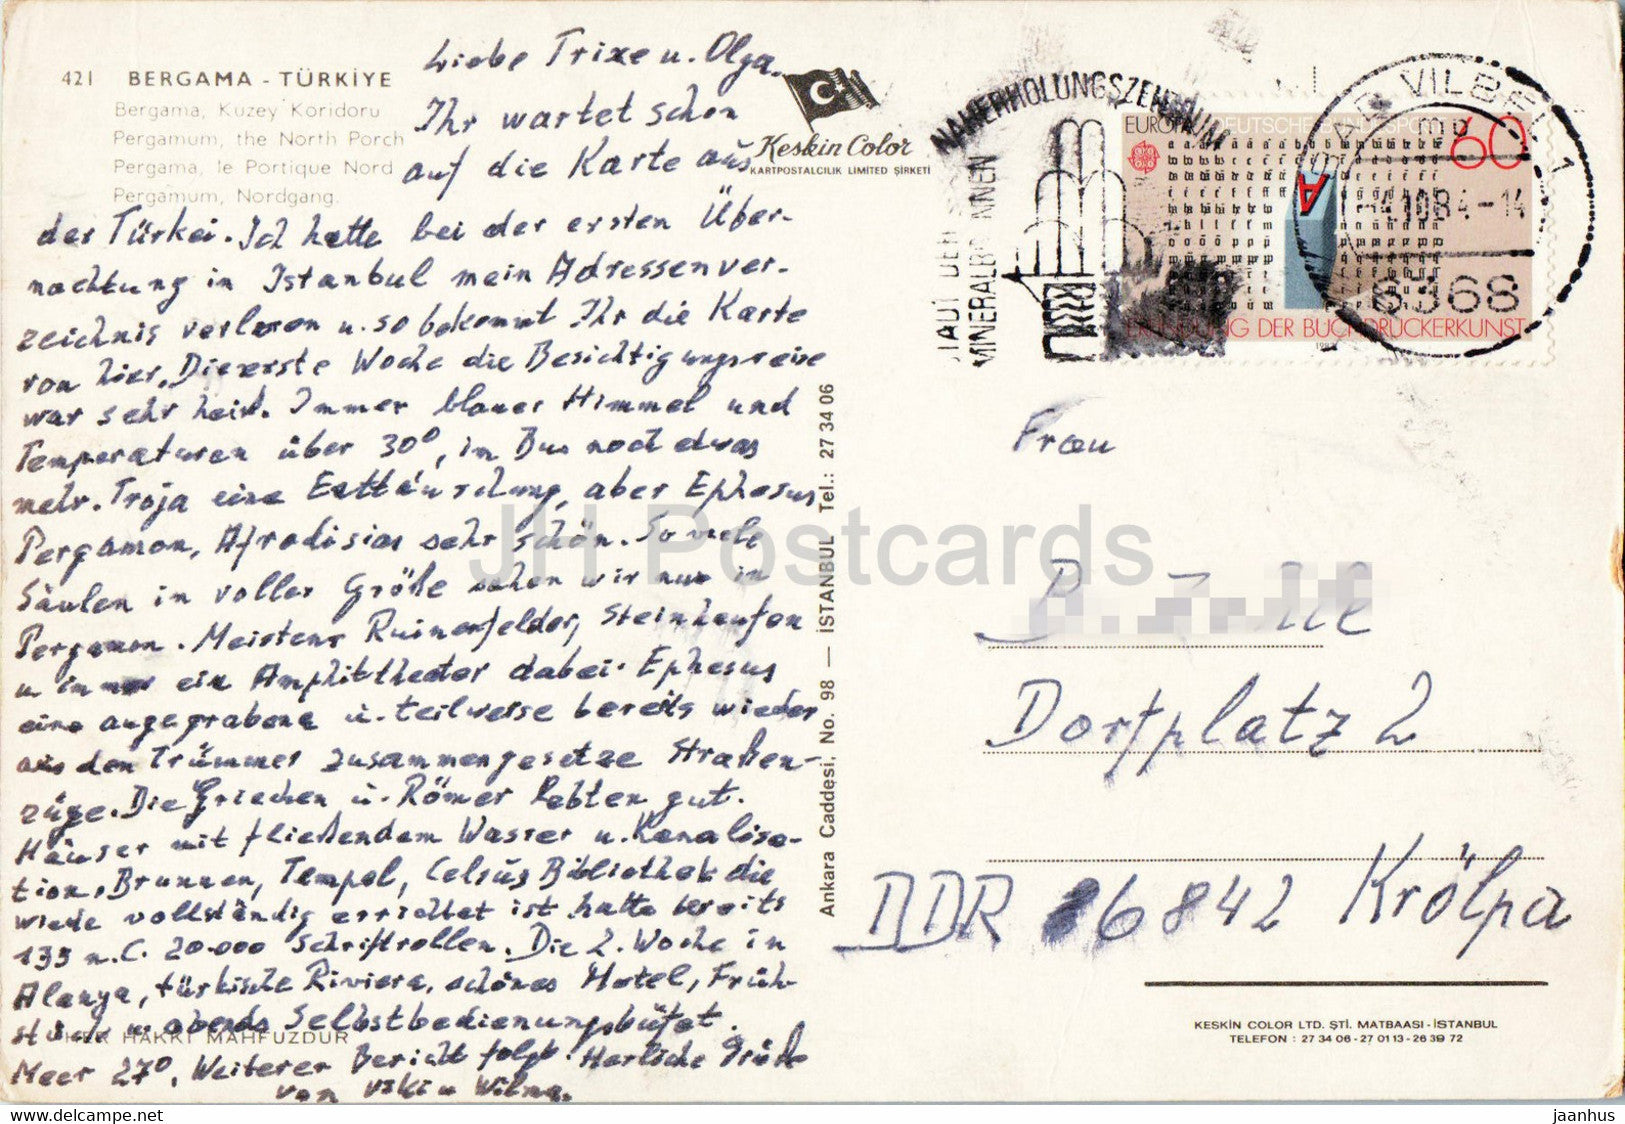 421 BERGAMA - TÜRKİYE
Bergama, Kuzey Koridoru
Pergamum, the North Porch
Pergama, le Portique Nord
Pergamum, Nordgang.
Liebe Trixe u. Olga.
Ihr wartet schon
auf die Karte aus
der Türkei. Ich hatte bei der ersten Über-
nachtung in Istanbul mein Adressenver-
zeichnis verloren u. so bekommt Ihr die Karte
von hier. Die erste Woche die Besichtigungsreise
war sehr heiß. Immer blauer Himmel und
Temperaturen über 30°, im Bus noch etwas
mehr. Troja eine Enttäuschung, aber Ephesus,
Pergamon, Afrodisias sehr schön. So viele
Säulen in voller Größe sahen wir nur in
Pergamon. Meistens Ruinenfelder, Steinhaufen
u immer ein Amphittheater dabei. Ephesus
eine angegrabene u. teilweise bereits wieder
aus den Trümmer zusammengesetze Straßen-
züge. Die Griechen u. Römer lebten gut.
Häuser mit fließendem Wasser u. Kanalisa-
tion. Brunnen, Tempel, Celsus Bibliothek die
wiede vollständig errichtet ist hatte bereits
135 n. C. 20.000 Schriftrollen. Die 2. Woche in
Alanya, türkische Riviera, schönes Hotel, Früh-
stück u. abends Selbstbedienungsbüfet.
HER HAKKI MAHFUZDUR
Meer 27°. Weiterer Bericht folgt. Herzliche Grüße
von u Wilma.
Keskin Color
KARTPOSTALCILIK LIMITED ŞİRKETİ
Ankara Caddesi, No. 98 — İSTANBUL Tel.: 27 34 06
NAHERHOLUNGSZENTRUM
STADT DER
MINERALBRUNNEN
BAD VILBEL 1
mb
-4.10.84-14
6368
EUROPA DEUTSCHE BUNDESPOST 60
A
ERFINDUNG DER BUCHDRUCKERKUNST
Frau
Dorfplatz 2
DDR 6842 Krölpa
KESKİN COLOR LTD. ŞTİ. MATBAASI - İSTANBUL
TELEFON : 27 34 06 - 27 01 13 - 26 39 72
JH Postcards
jaanhus - delcampe.net